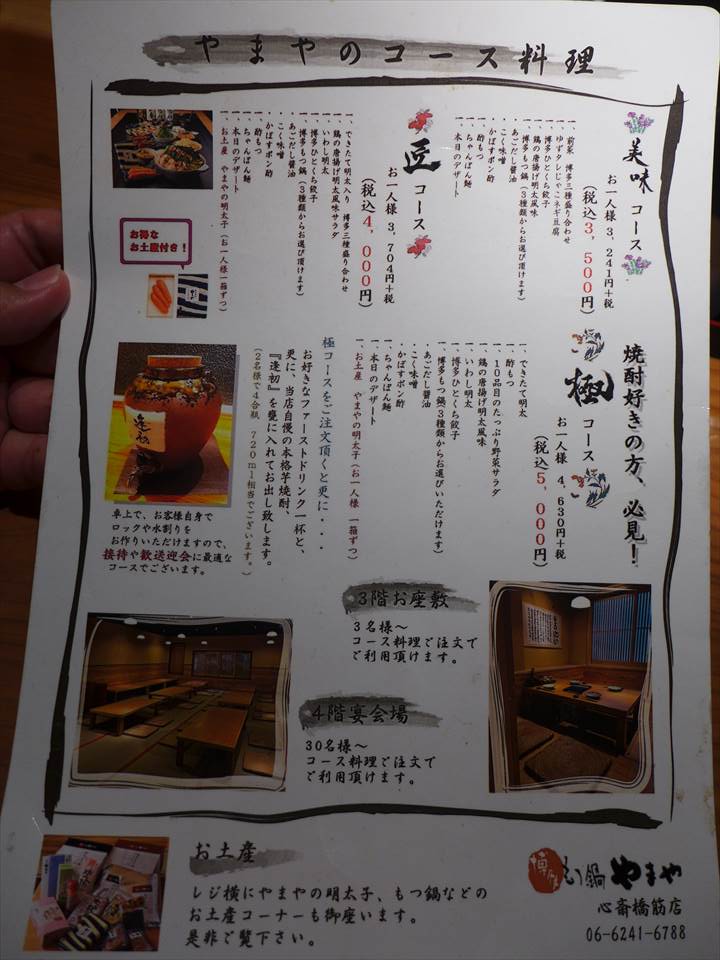 やまやのコース料理
美味コース
お一人様 3,241円+税
(税込3,500円)
一、前菜 博多三種盛り合わせ
一、ゆずタレじゃこネギ豆腐
一、博多ひとくち餃子
一、鶏の唐揚げ明太風味
一、博多もつ鍋(3種類からお選び頂けます)
・あごだし醤油
・こく味噌
・かぼすポン酢
一、酢もつ
一、ちゃんぽん麺
一、本日のデザート
匠コース
お一人様 3,704円+税
(税込4,000円)
一、できたて明太入り 博多三種盛り合わせ
一、鶏の唐揚げ明太風味サラダ
一、いわし明太
一、博多ひとくち餃子
一、博多もつ鍋(3種類からお選び頂けます)
・あごだし醤油
・こく味噌
・かぼすポン酢
一、酢もつ
一、ちゃんぽん麺
一、本日のデザート
一、お土産 やまやの明太子(お一人様一箱ずつ)
お得な
お土産付き!
焼酎好きの方、必見!
極コース
お一人様 4,630円+税
(税込5,000円)
一、できたて明太
一、酢もつ
一、10品目のたっぷり野菜サラダ
一、鶏の唐揚げ明太風味
一、いわし明太
一、博多ひとくち餃子
一、博多もつ鍋(3種類からお選びいただけます)
・あごだし醤油
・こく味噌
・かぼすポン酢
一、ちゃんぽん麺
一、本日のデザート
一、お土産 やまやの明太子(お一人様 一箱ずつ)
極コースをご注文頂くと更に・・・
お好きなファーストドリンク一杯と、
更に、当店自慢の本格芋焼酎、
『逢初』を甕に入れてお出し致します。
(2名様で4合瓶 720ml相当でございます。)
逢初
卓上で、お客様自身で
ロックや水割りを
お作りいただけますので、
接待や歓送迎会に最適な
コースでございます。
3階お座敷
3名様~
コース料理ご注文で
ご利用頂けます。
4階宴会場
30名様~
コース料理ご注文で
ご利用頂けます。
お土産
レジ横にやまやの明太子、もつ鍋などの
お土産コーナーも御座います。
是非ご覧下さい。
博多もつ鍋 やまや
心斎橋筋店
06-6241-6788